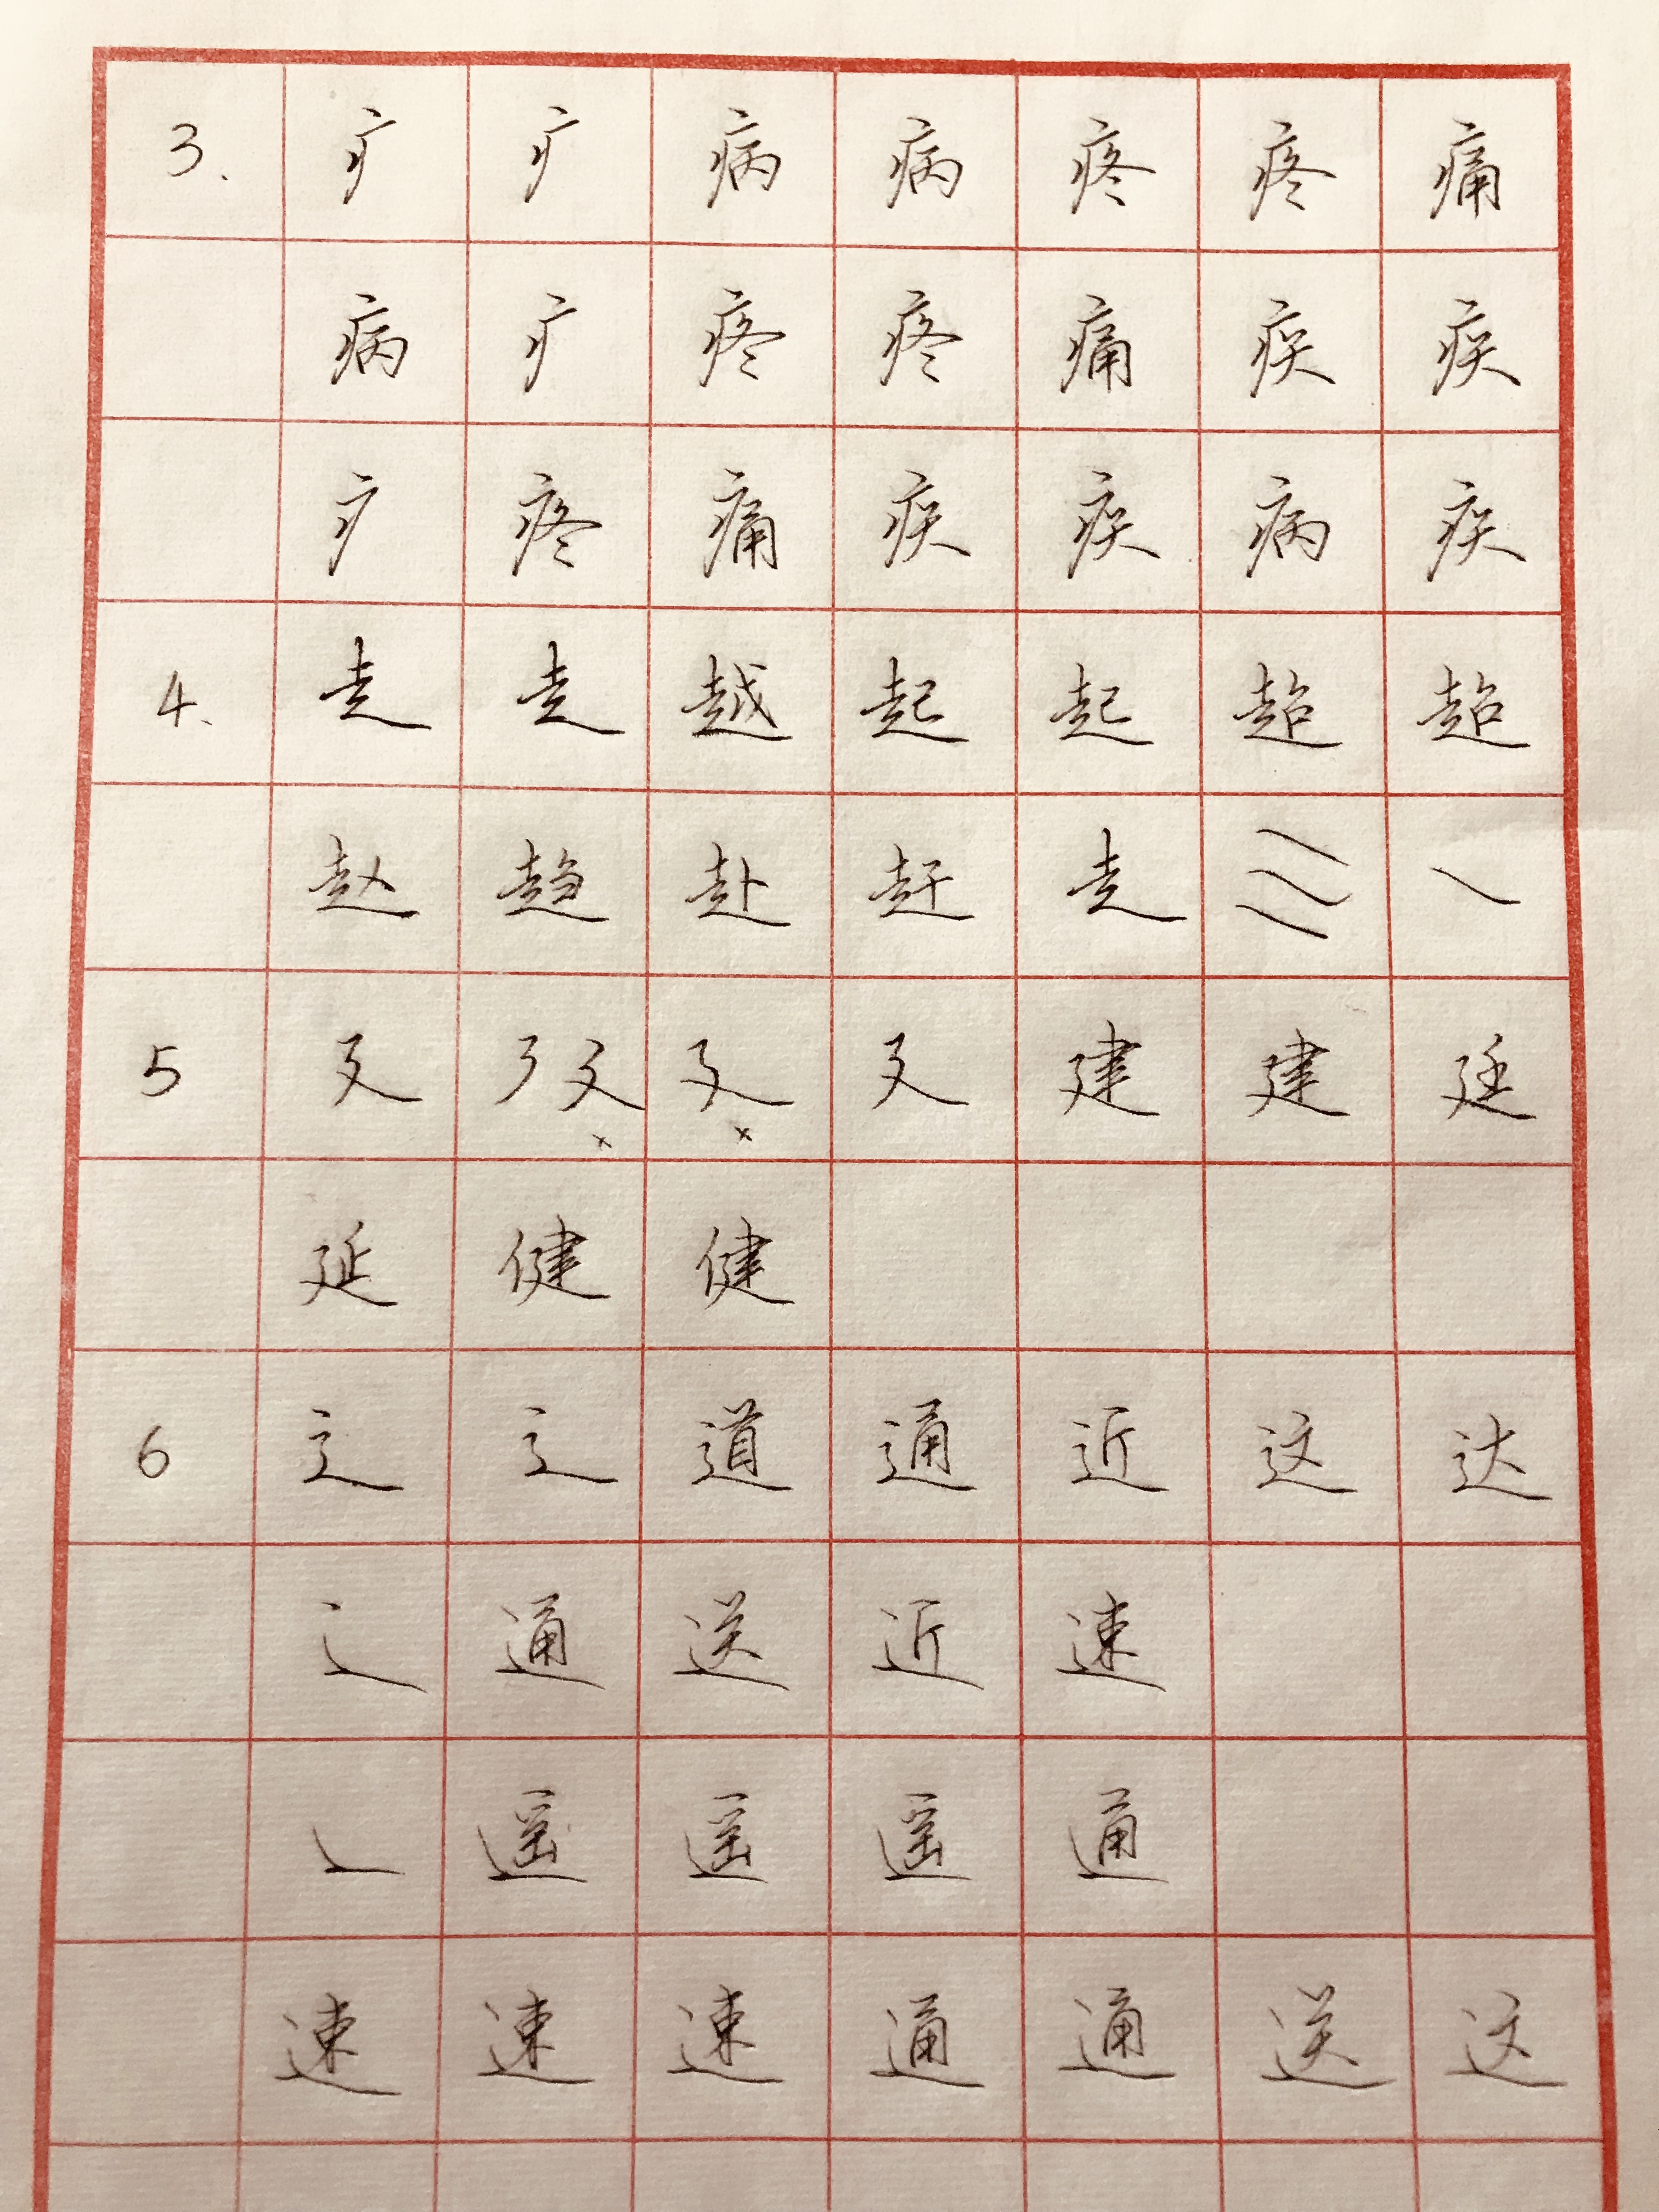 3、 疒 疒 病 病 疼 疼 痛
病 疒 疼 疼 痛 疾 疾
疒 疼 痛 疾 疾 病 疾
4、 走 走 越 起 起 超 超
赵 趋 赴 赶 走
5 廴 廴 建 建 廷
延 健 健
6 辶 辶 道 通 近 这 达
辶 通 送 近 速
遥 遥 遥 通
速 速 速 通 通 送 这